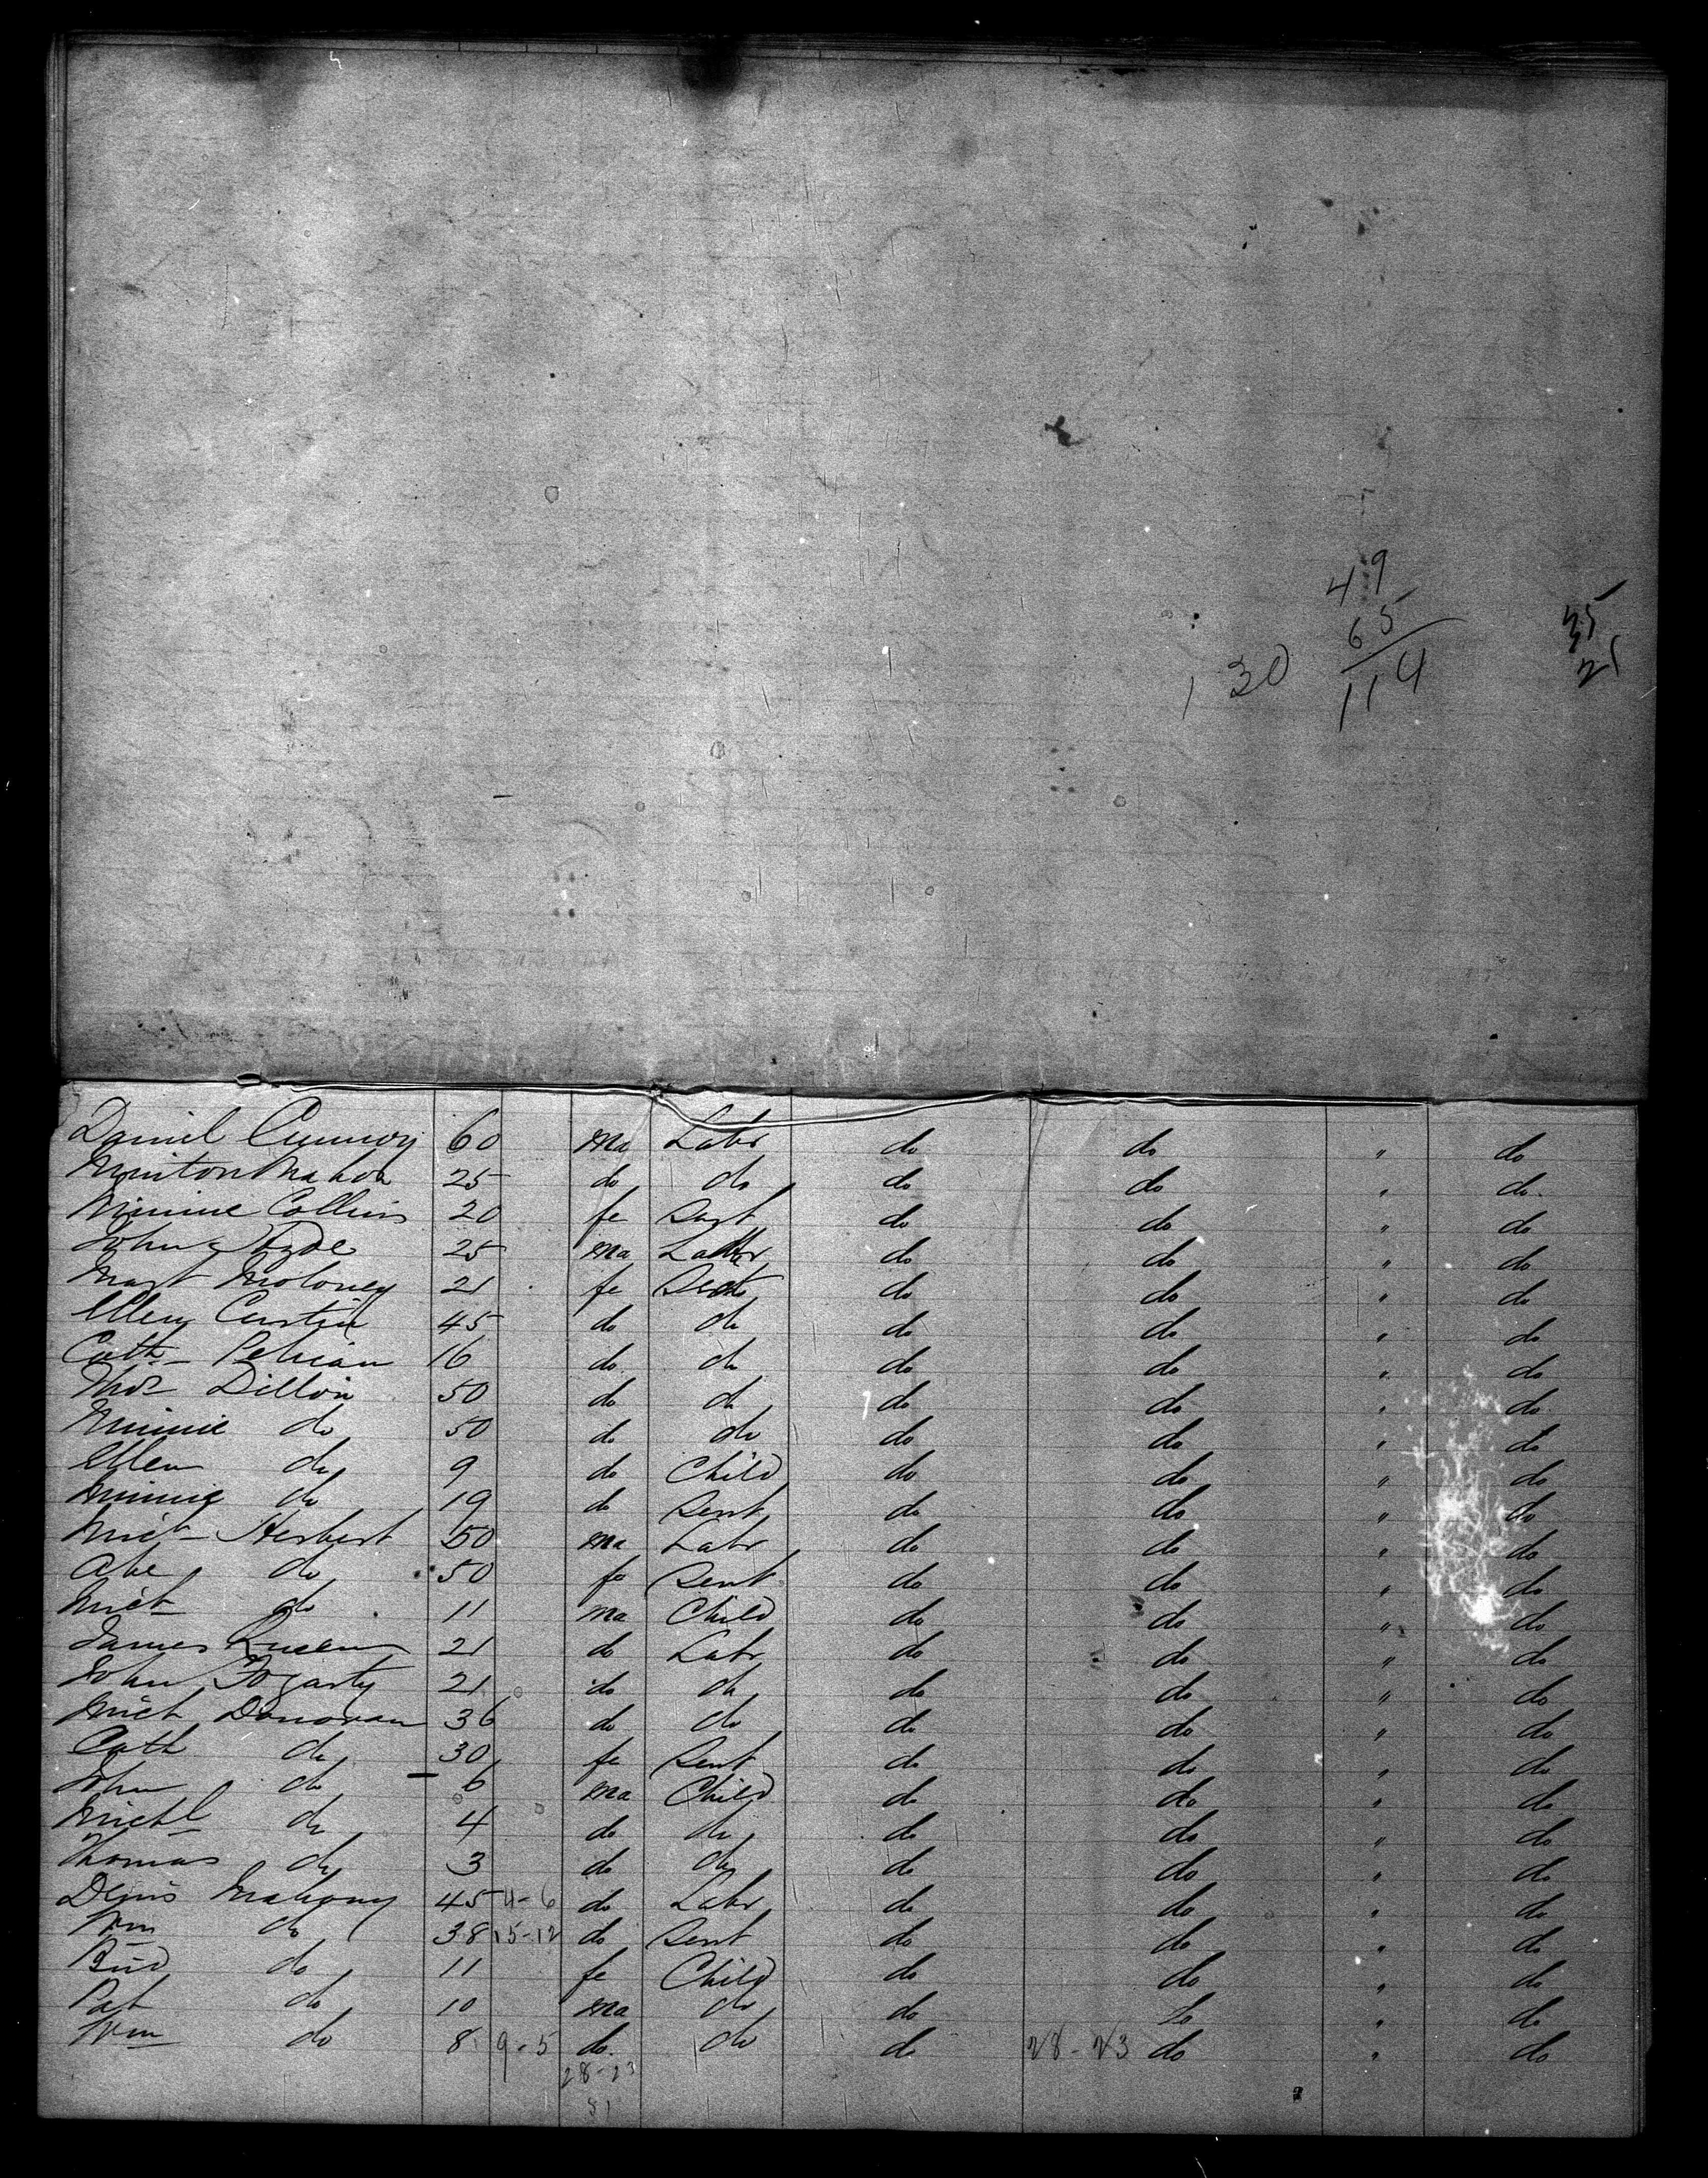 49
65
1 30 114
35
21
Daniel 60 ma Labr do do " do
Mahon 25 do do do do " do
Minnie Collins 20 fe Sevt do do " do
John Hyde 25 ma Labr do do " do
Margt Moloney 21 fe Sevt do do " do
Ellen Curtin 45 do do do do " do
Cath 16 do do do do " do
Thos Dillon 50 do do do do " do
Minnie do 50 do do do do " do
Ellen do 9 do Child do do " do
Minnie do 19 do Sevt do do " do
Mich Herbert 50 ma Labr do do " do
Abe do 50 fe Sevt do do " do
Mich do 11 ma Child do do " do
James 21 do Labr do do " do
John Fogarty 21 do do do do " do
Mich Donovan 36 do do do do " do
Cath do 30 fe Sevt do do " do
John do 6 ma Child do do " do
Michl do 4 do do do do " do
Thomas do 3 do do do do " do
Denis Mahony 45 4-6 do Labr do do " do
Wm do 38 15-12 do Sevt do do " do
Bird do 11 fe Child do do " do
Pat do 10 ma do do do " do
Wm do 8 9-5 do do do 28-23 do " do
28-23
51